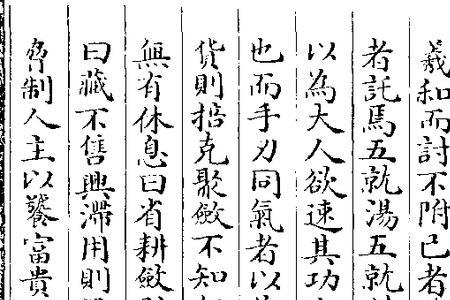 羲和而討不附已者
者託馬五就湯五就
以為大人欲速其功
也而手刃同氣者以
貨則掊克聚斂不知
無有休息曰省耕斂
曰藏不售興滯用則
脅制人主以饕富貴